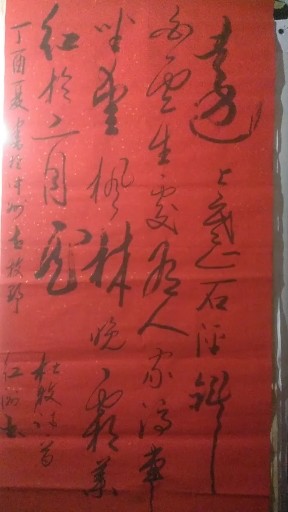 遠上寒山石径斜
白雲生處有人家停車
坐愛楓林晚霜葉
紅於二月花
杜牧诗一首
丁酉夏書於